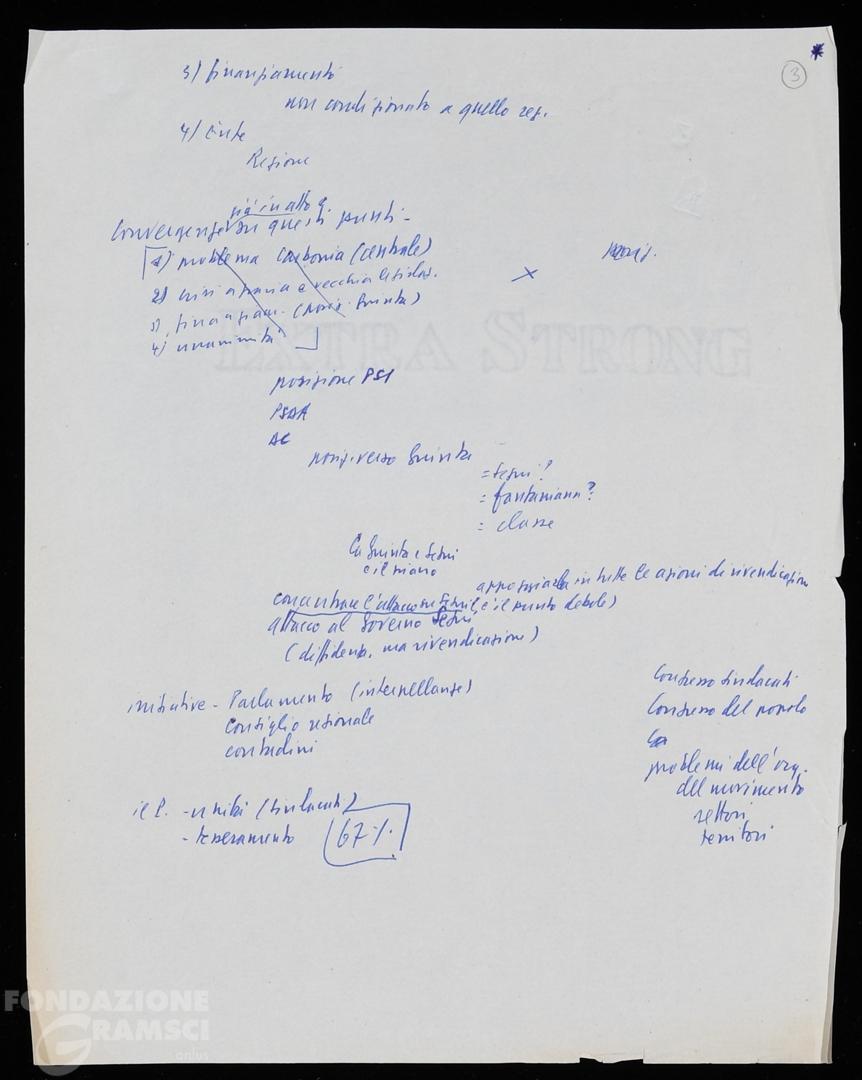 3
*
3) finanziamento
non condizionato a quello reg.
4) Ente
Regione
già in atto
Convergenze su questi punti -
1) problema Carbonia (centrale)
2) crisi agraria e vecchia legislaz.
3) finanziam. (posiz. Giunta)
4) unanimità
×
posizione PSI
PSdA
posiz. verso Giunta
= Segni?
= fanfaniana?
= classe
La Giunta e Segni
e il piano
appoggiarla in tutte le azioni di rivendicazione
concentrare l'attacco su Segni (è il punto debole)
attacco al Governo Segni
(diffidenza, ma rivendicazione)
iniziative - Parlamento (interpellanze)
Consiglio regionale
contadini
Congresso sindacati
Congresso del popolo
problemi dell'org.
del movimento
settori
territori
il P. - unità (sindacati)
- tesseramento 67%
EXTRA STRONG
FONDAZIONE
GRAMSCI
onlus